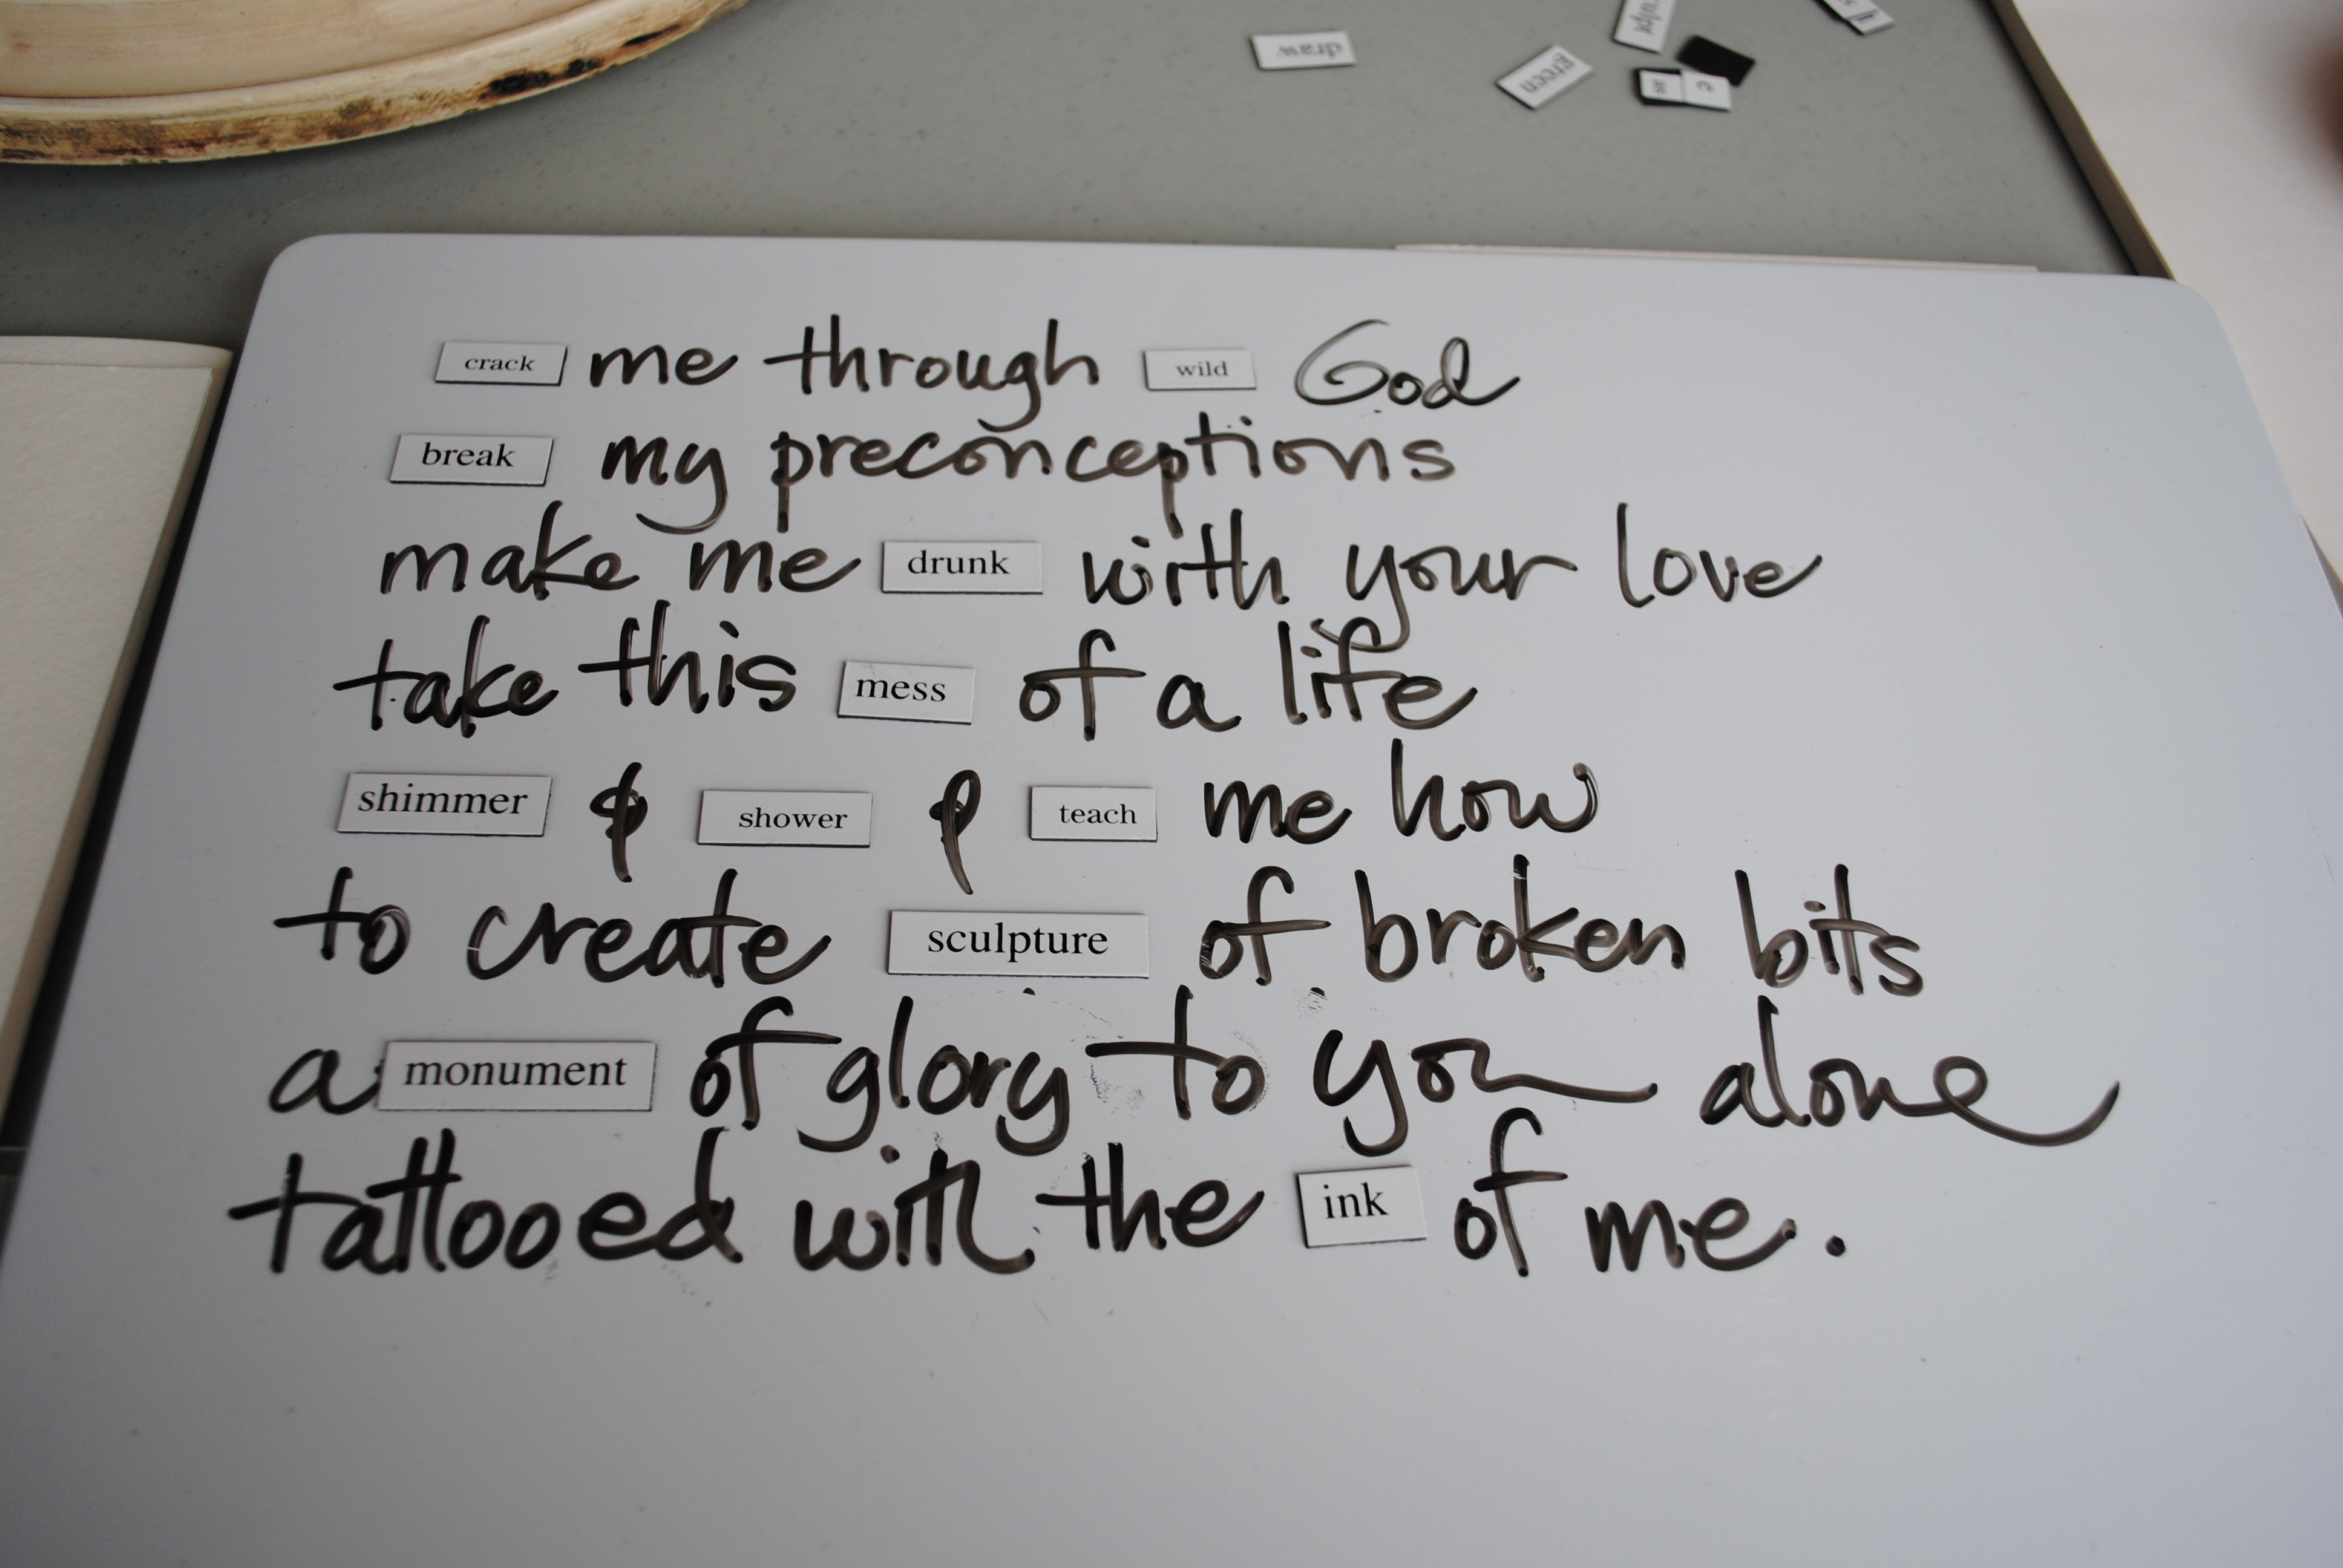 draw
green
crack me through wild God
break my preconceptions
make me drunk with your love
take this mess of a life
shimmer & shower & teach me how
to create sculpture of broken bits
a monument of glory to you alone
tattooed with the ink of me.